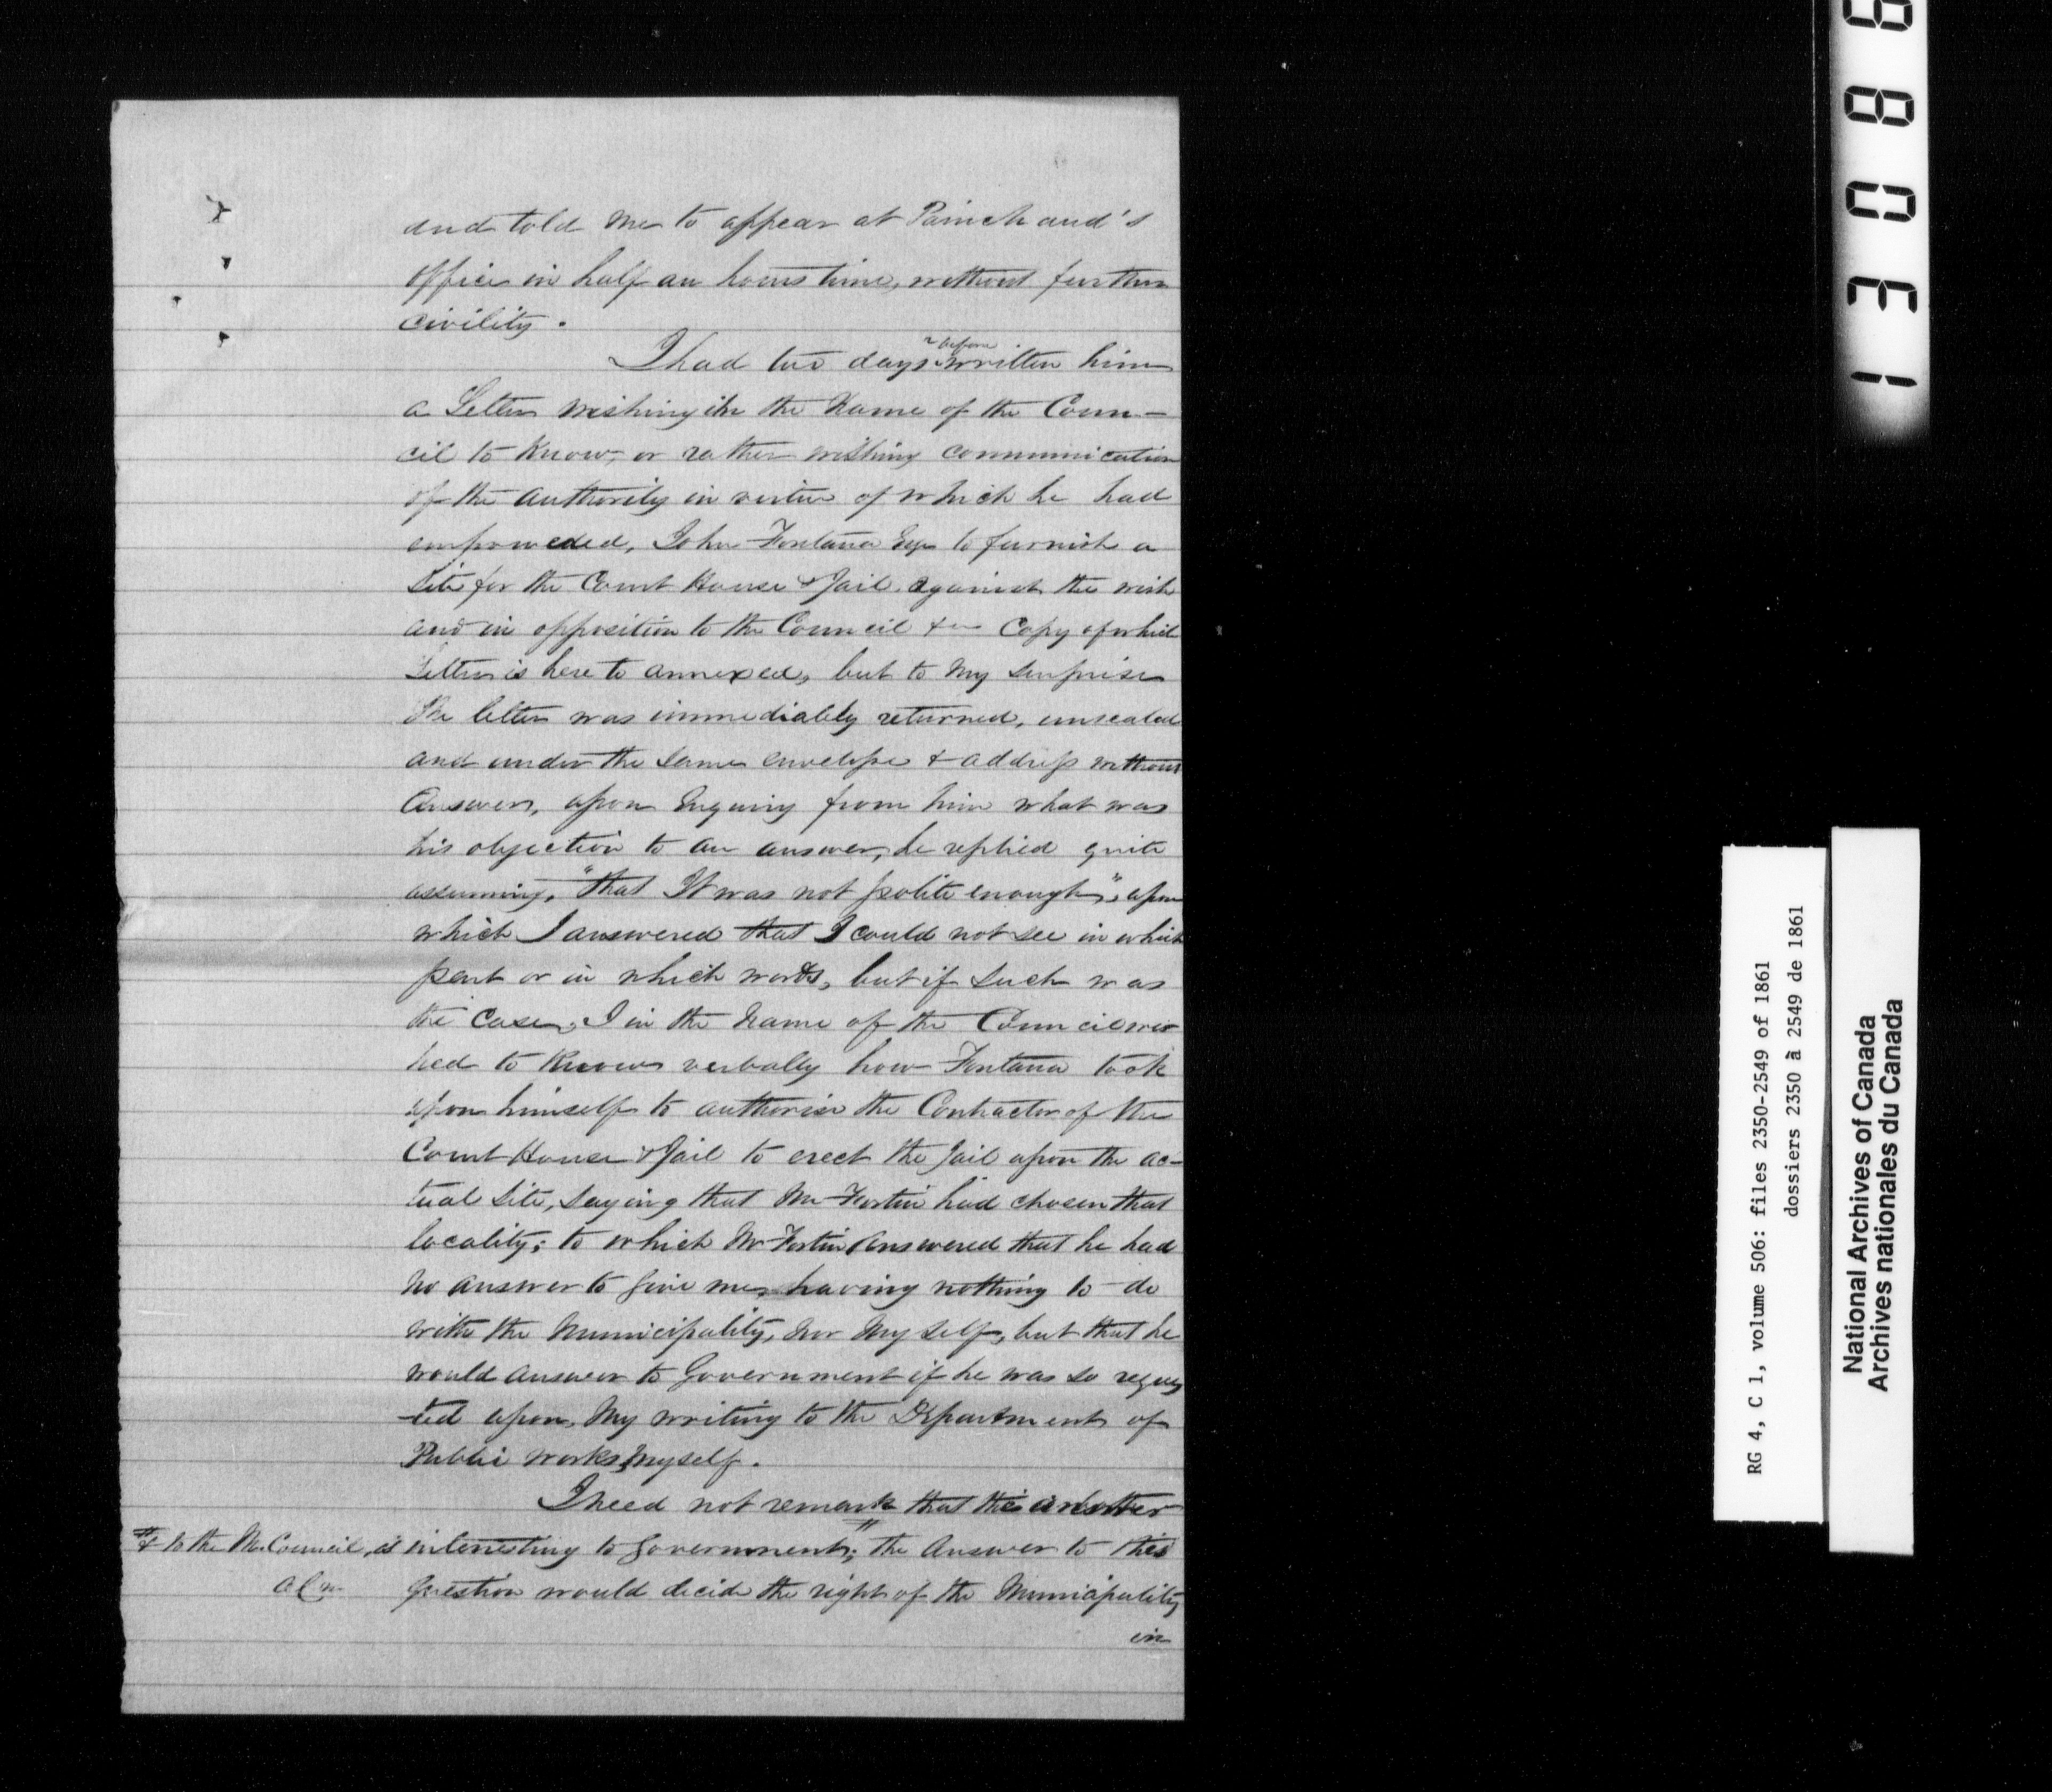 and told me to appear at Painchaud's
office in half an hours time, without further
civility.
I had two days before written him
a Letter wishing in the Name of the Coun-
cil to Know, or rather wishing communication
of the authority in virtue of which he had
empowered, John Fontana Esqr to furnish a
site for the Court House & Jail against the wish
and in opposition to the Council Copy of which
Letter is here to annexed, but to my surprise
The letter was immediately returned, unsealed
and under the same envelope & address without
Answer, upon Enquiry from him what was
his objection to an answer, he replied quite
assuming, "that It was not polite enough", upon
which I answered that I could not see in which
part or in which words, but if such was
the Case, I in the Name of the Council wis
hed to Know verbally how Fontana took
upon himself to authorise the Contractor of the
Court House & Jail to erect the Jail upon the ac-
tual site, saying that Mr Fortin had chosen that
locality; to which Mr Fortin Answered that he had
no answer to give me, having nothing to do
with the Municipality, nor My self, but that he
would answer to Government if he was so reques
-ted upon, My writing to the Department of
Public works, myself.
I need not remark that this answer
# & to the M. Council, is interesting to Government; # the Answer to this
question would decide the right of the Municipality
in
1 3 0 8
RG 4, C 1, volume 506: files 2350-2549 of 1861
dossiers 2350 à 2549 de 1861
National Archives of Canada
Archives nationales du Canada